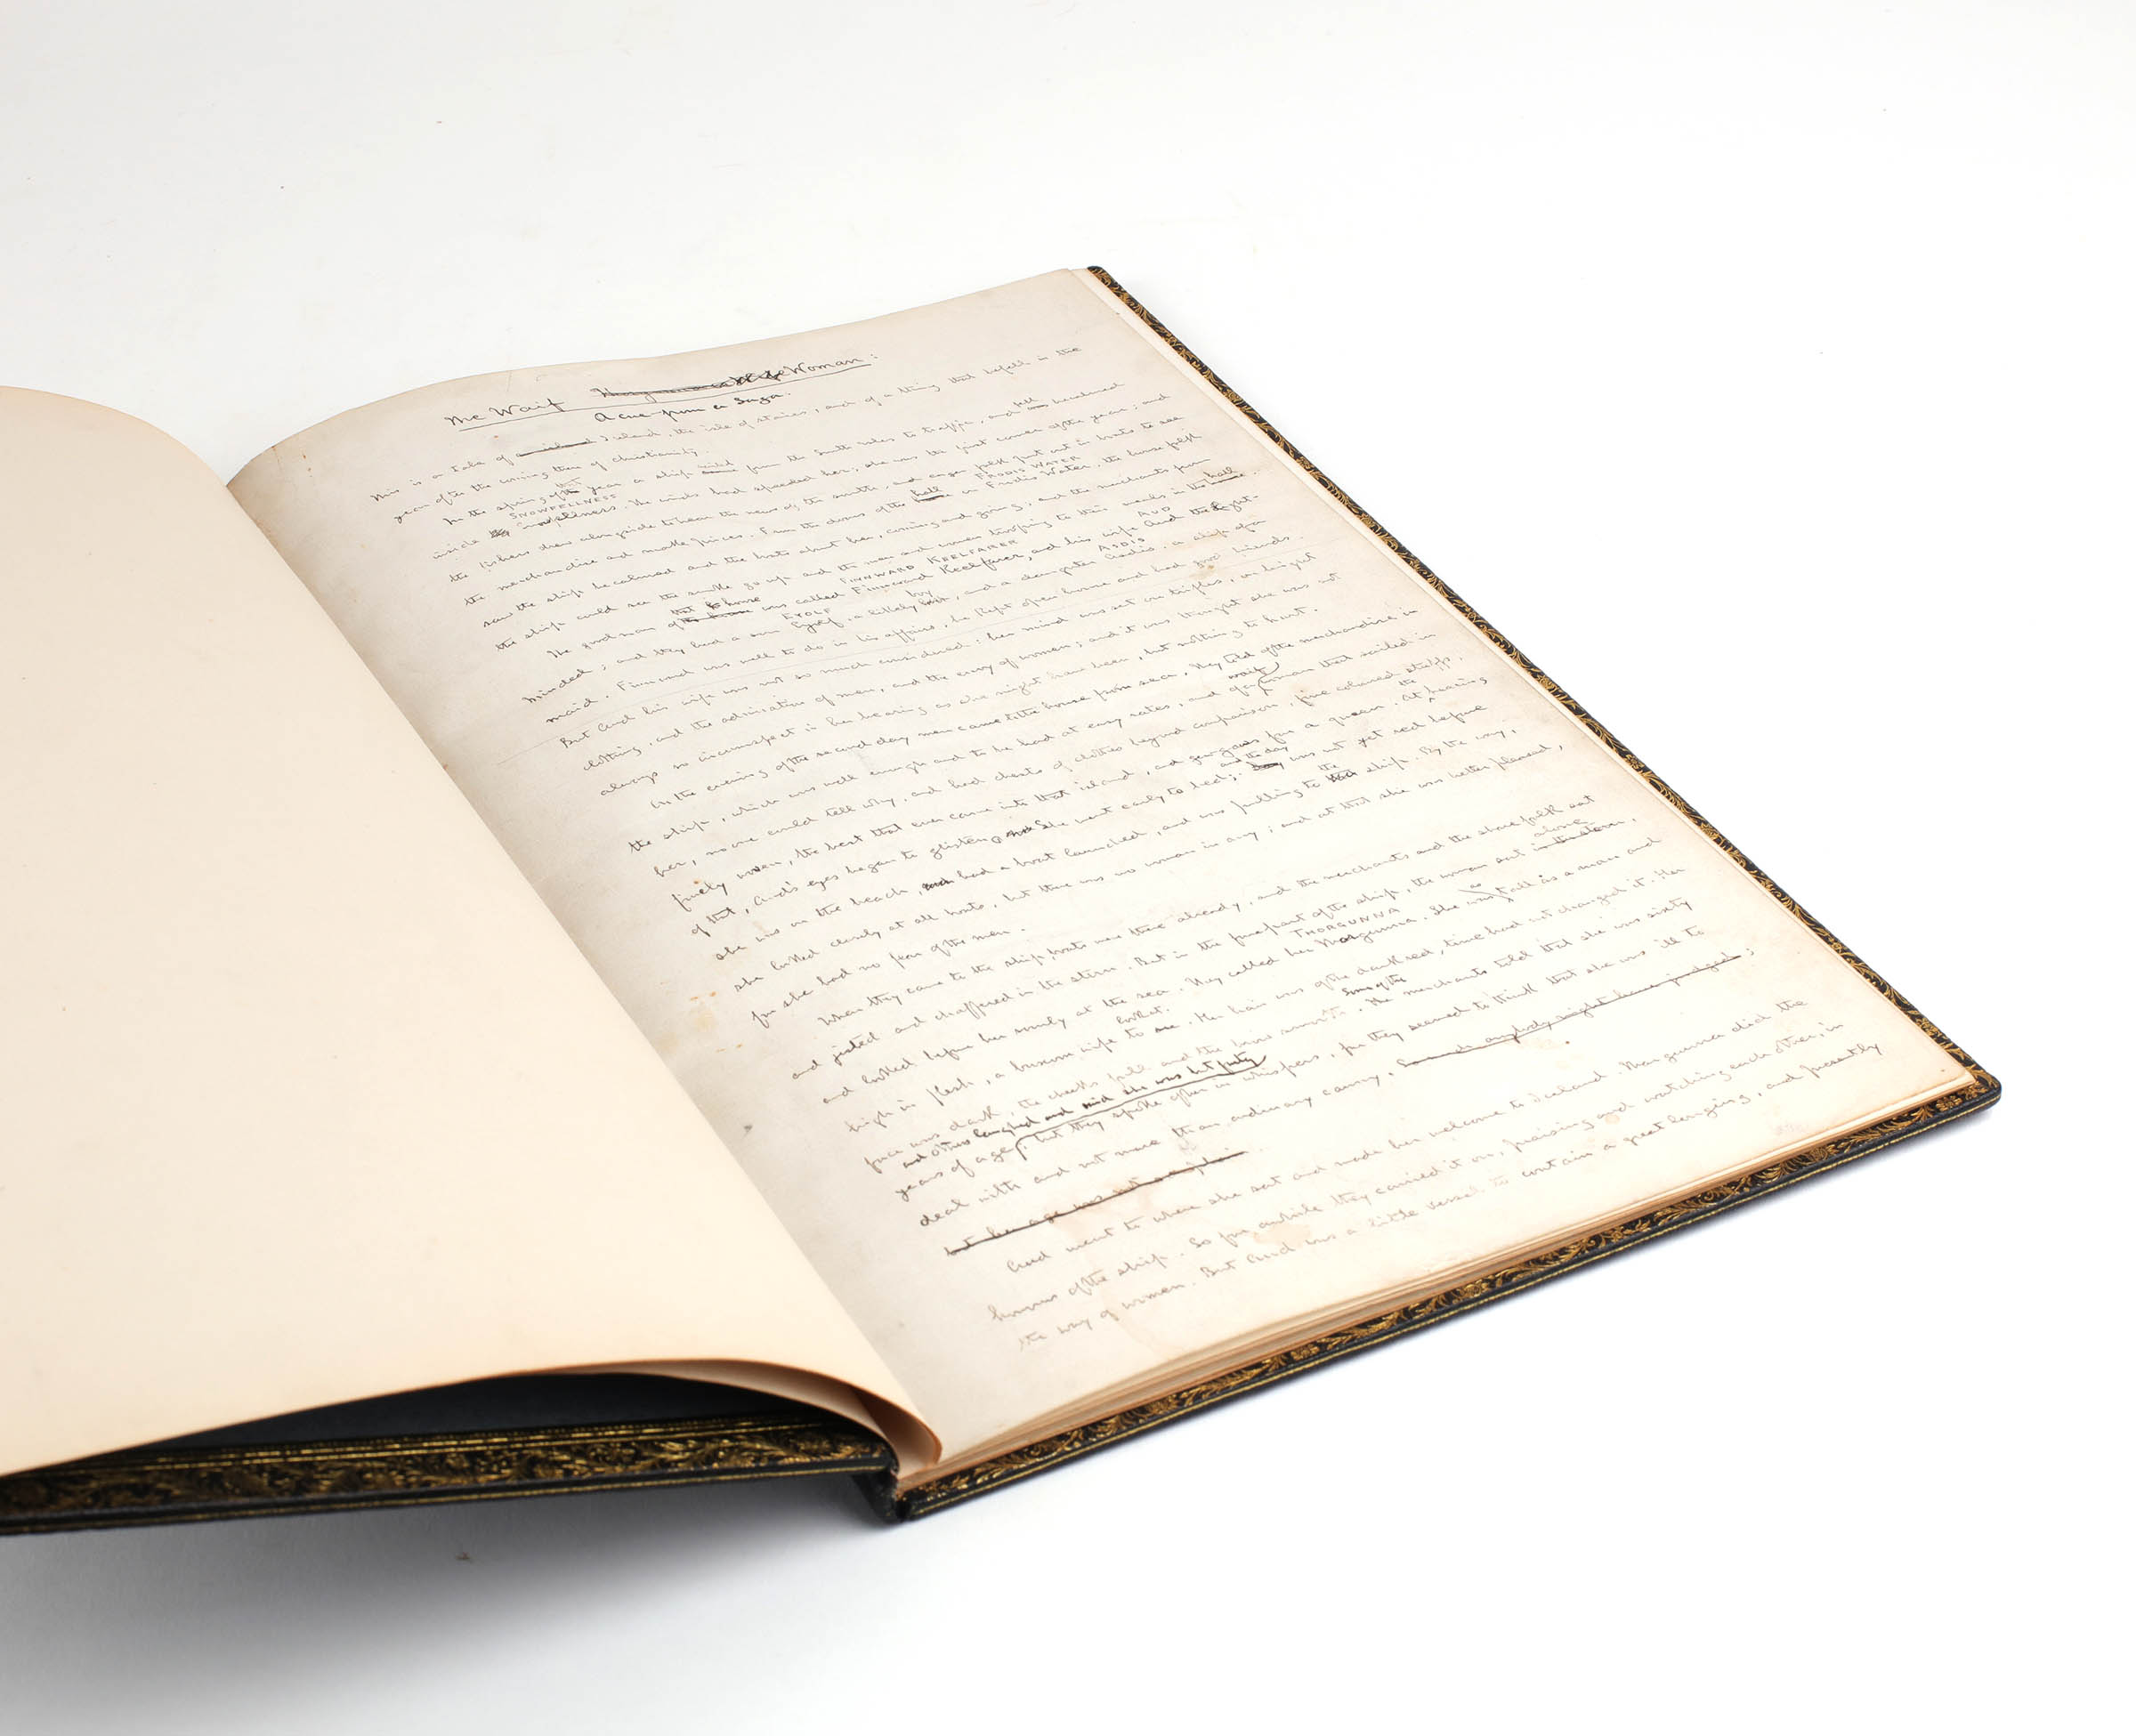 The Waif Woman:
A cue—from a Saga.
This is a tale of Iceland, the isle of stories, and of a thing that befell in the
year of the coming there of Christianity.
In the spring of that year a ship sailed from the South Isles to traffic, and fell becalmed
SNOWFELLNESS FRODIS WATER
inside Snowfellness. The winds had speeded her; she was the first comer of the year; and
the fishers drew alongside to hear the news of the south, and eager folk put out in boats to see
the merchandise and make prices. From the doors of the hall on Frodis Water, the house folk
saw the ship becalmed and the boats about her, coming and going; and the merchants from
the ship could see the smoke go up and the men and women trooping to their meals in the hall.
FINNWARD KEELFARER AUD
The goodman of that house was called Finnward Keelfarer, and his wife Aud the Light-
EYOLF ASDIS
minded; and they had a son Eyolf, a likely boy, and a daughter Asdis, a slip of a
maid. Finnward was well to do in his affairs, he kept open house and had good friends.
But Aud his wife was not so much considered: her mind was set on trifles, on bright
clothing, and the admiration of men, and the envy of women; and it was thought she was not
always so circumspect in her bearing as she might have been, but nothing to hurt.
On the evening of the second day men came to the house from sea. They told of the merchandise in
the ship, which was well enough and to be had at easy rates, and of a waif woman that sailed in
her, no one could tell why, and had chests of clothes beyond comparison, fine coloured stuffs,
finely woven, the best that ever came into that island, and gewgaws for a queen. At the hearing
of that, Aud's eyes began to glisten. She went early to bed; and the day was not yet red before
she was on the beach, had a boat launched, and was pulling to the ship. By the way,
she looked closely at all boats, but there was no woman in any; and at that she was better pleased,
for she had no fear of the men.
When they came to the ship, boats were there already, and the merchants and the shore folk sat
and jested and chaffered in the stern. But in the fore part of the ship, the woman sat alone,
THORGUNNA
and looked before her sourly at the sea. They called her Thorgunna. She was as tall as a man and
high in flesh, a buxom wife to look at. Her hair was of the dark red, time had not changed it. Her
face was dark, the cheeks full and the brow smooth. Some of the merchants told that she was sixty
years of age, and others laughed and said she was but forty; but they spoke of her in whispers, for they seemed to think that she was ill to
deal with and not more than ordinary canny. though anybody might have judged;
but her age was not
Aud went to where she sat and made her welcome to Iceland. Thorgunna did the
honours of the ship. So for a while they carried it on, praising and watching each other, in
the way of women. But Aud was a little vessel to contain a great longing, and presently